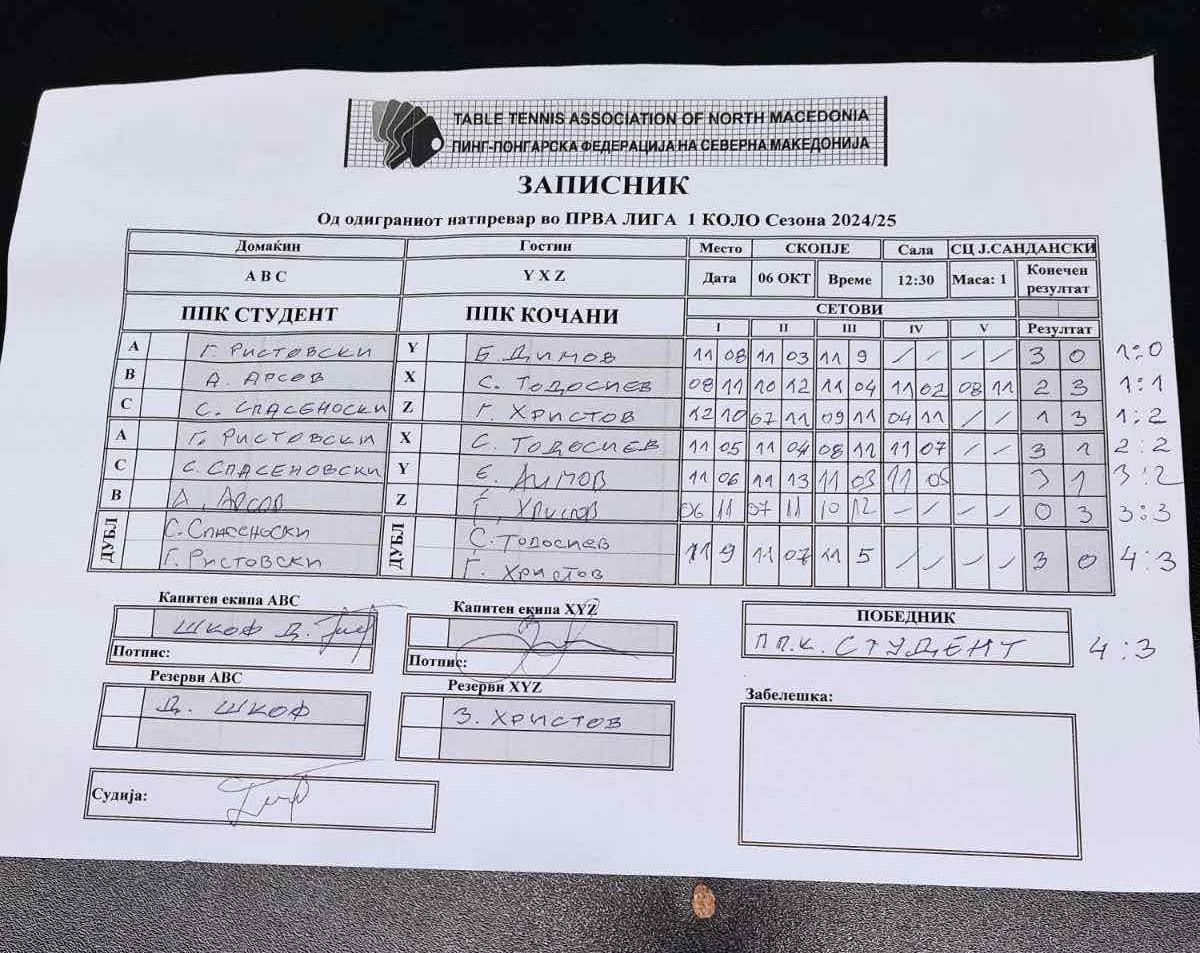 TABLE TENNIS ASSOCIATION OF NORTH MACEDONIA
ПИНГ-ПОНГАРСКА ФЕДЕРАЦИЈА НА СЕВЕРНА МАКЕДОНИЈА
ЗАПИСНИК
Од одиграниот натпревар во ПРВА ЛИГА 1 КОЛО Сезона 2024/25
Домаќин Гостин Место СКОПЈЕ Сала СЦ Ј.САНДАНСКИ
A B C Y X Z Дата 06 ОКТ Време 12:30 Маса: 1 Конечен резултат
ППК СТУДЕНТ ППК КОЧАНИ СЕТОВИ
I II III IV V Резултат
A Г. РИСТОВСКИ Y Б. ДИМОВ 11 08 11 03 11 9 / / / / 3 0 1:0
B А. АРСОВ X С. ТОДОСИЕВ 08 11 10 12 11 04 11 02 08 11 2 3 1:1
C С. СПАСЕНОСКИ Z Г. ХРИСТОВ 12 10 07 11 09 11 04 11 / / 1 3 1:2
A Г. РИСТОВСКИ X С. ТОДОСИЕВ 11 05 11 04 08 11 11 07 / / 3 1 2:2
C С. СПАСЕНОВСКИ Y ДИМОВ 11 06 11 13 11 03 11 05 3 1 3:2
B А. АРСОВ Z Г. ХРИСТОВ 06 11 07 11 10 12 / / / / 0 3 3:3
ДУБЛ С. СПАСЕНОСКИ ДУБЛ С. ТОДОСИЕВ 11 9 11 07 11 5 / / / / 3 0 4:3
Г. РИСТОВСКИ Г. ХРИСТОВ
Капитен екипа ABC Капитен екипа XYZ ПОБЕДНИК
ШКОФ Д. П.П.К. СТУДЕНТ 4:3
Потпис: Потпис:
Резерви ABC Резерви XYZ Забелешка:
Д. ШКОФ З. ХРИСТОВ
Судија: